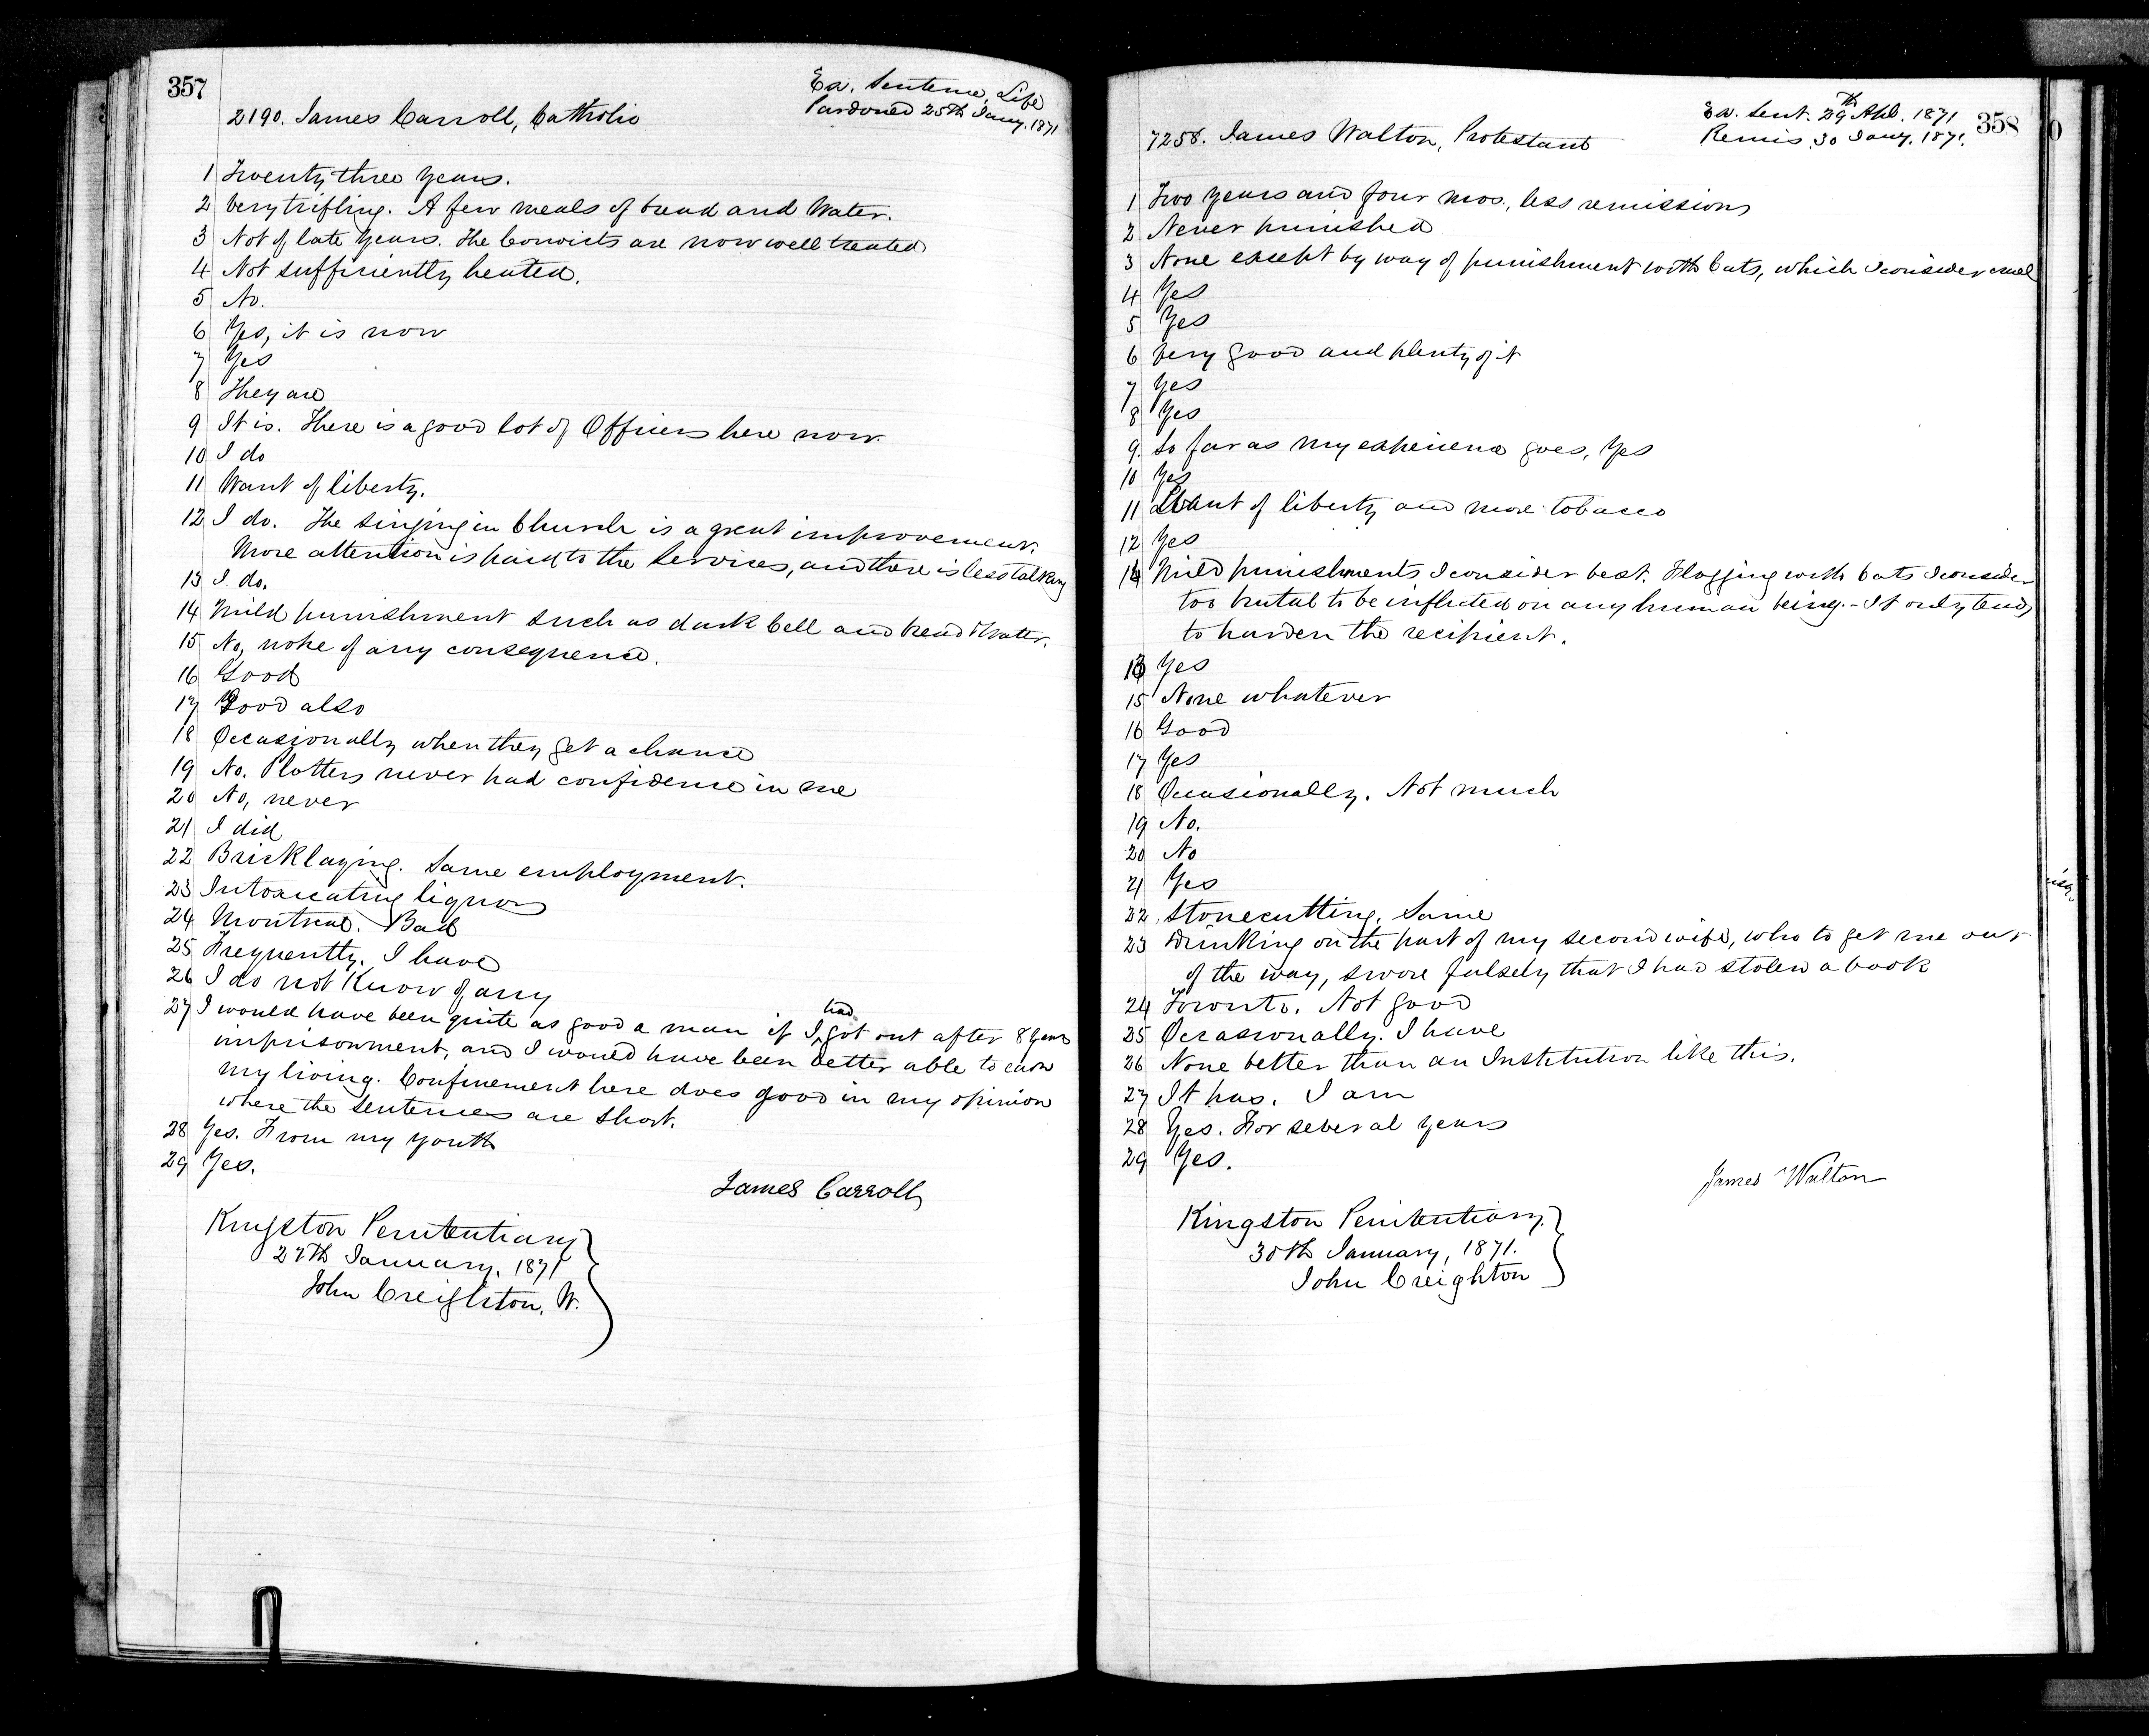 357
Ex. Sentence, Life
Pardoned 25th Jany. 1871
2190. James Carroll, Catholic
1 Twenty three years.
2 Very trifling. A few meals of bread and Water.
3 Not of late years. The Convicts are now well treated
4 Not sufficiently heated.
5 No.
6 Yes, it is now
7 Yes
8 They are
9 It is. There is a good lot of Officers here now.
10 I do
11 Want of liberty.
12 I do. The singing in Church is a great improvement.
More attention is paid to the Services, and there is less talking
13 I do.
14 Mild punishment such as dark Cell and bread & Water.
15 No, none of any consequence.
16 Good
17 Good also
18 Occasionally when they get a chance
19 No. Plotters never had confidence in me
20 No, never
21 I did
22 Bricklaying. Same employment.
23 Intoxicating liquor
24 Montreal. Bad
25 Frequently. I have
26 I do not Know of any
27 I would have been quite as good a man if I had got out after 8 years
imprisonment, and I would have been better able to earn
my living. Confinement here does good in my opinion
where the sentences are short.
28 Yes. From my youth
29 Yes.
James Carroll
Kingston Penitentiary
27th January, 1871
John Creighton, W.
Ex. Sent. 29th Apl. 1871
358
Remis. 30 Jany. 1871.
7258. James Walton, Protestant
1 Two years and four mos., less remission
2 Never punished
3 None except by way of punishment with Cats, which I consider cruel
4 Yes
5 Yes
6 Very good and plenty of it
7 Yes
8 Yes
9. So far as my experience goes, Yes
10 Yes
11 Want of liberty and more tobacco
12 Yes
14 Mild punishments I consider best. Flogging with Cats I consider
too brutal to be inflicted on any human being. - It only tends
to harden the recipient.
13 Yes
15 None whatever
16 Good
17 Yes
18 Occasionally. Not much
19 No.
20 No
21 Yes
22. Stonecutting. Same
23 Drinking on the part of my second wife, who to get me out
of the way, swore falsely that I had stolen a book
24 Toronto. Not good
25 Occasionally. I have
26 None better than an Institution like this.
27 It has. I am
28 Yes. For several years
29 Yes.
James Walton
Kingston Penitentiary.
30th January, 1871.
John Creighton